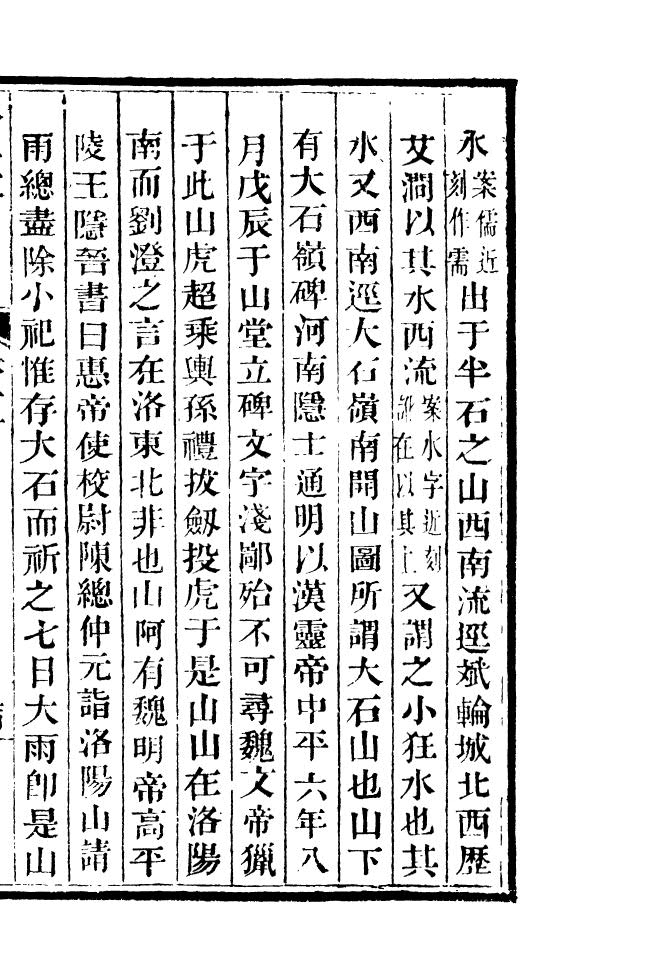 水案儒近刻作需出于半石之山西南流逕斌輪城北西歷
艾澗以其水西流案水字近刻訛在以其上又謂之小狂水也其
水又西南逕大石嶺南開山圖所謂大石山也山下
有大石嶺碑河南隱士通明以漢靈帝中平六年八
月戊辰于山堂立碑文字淺鄙殆不可尋魏文帝獵
于此山虎超乘輿孫禮拔劒投虎于是山山在洛陽
南而劉澄之言在洛東北非也山阿有魏明帝高平
陵王隱晉書曰惠帝使校尉陳總仲元詣洛陽山請
雨總盡除小祀惟存大石而祈之七日大雨卽是山